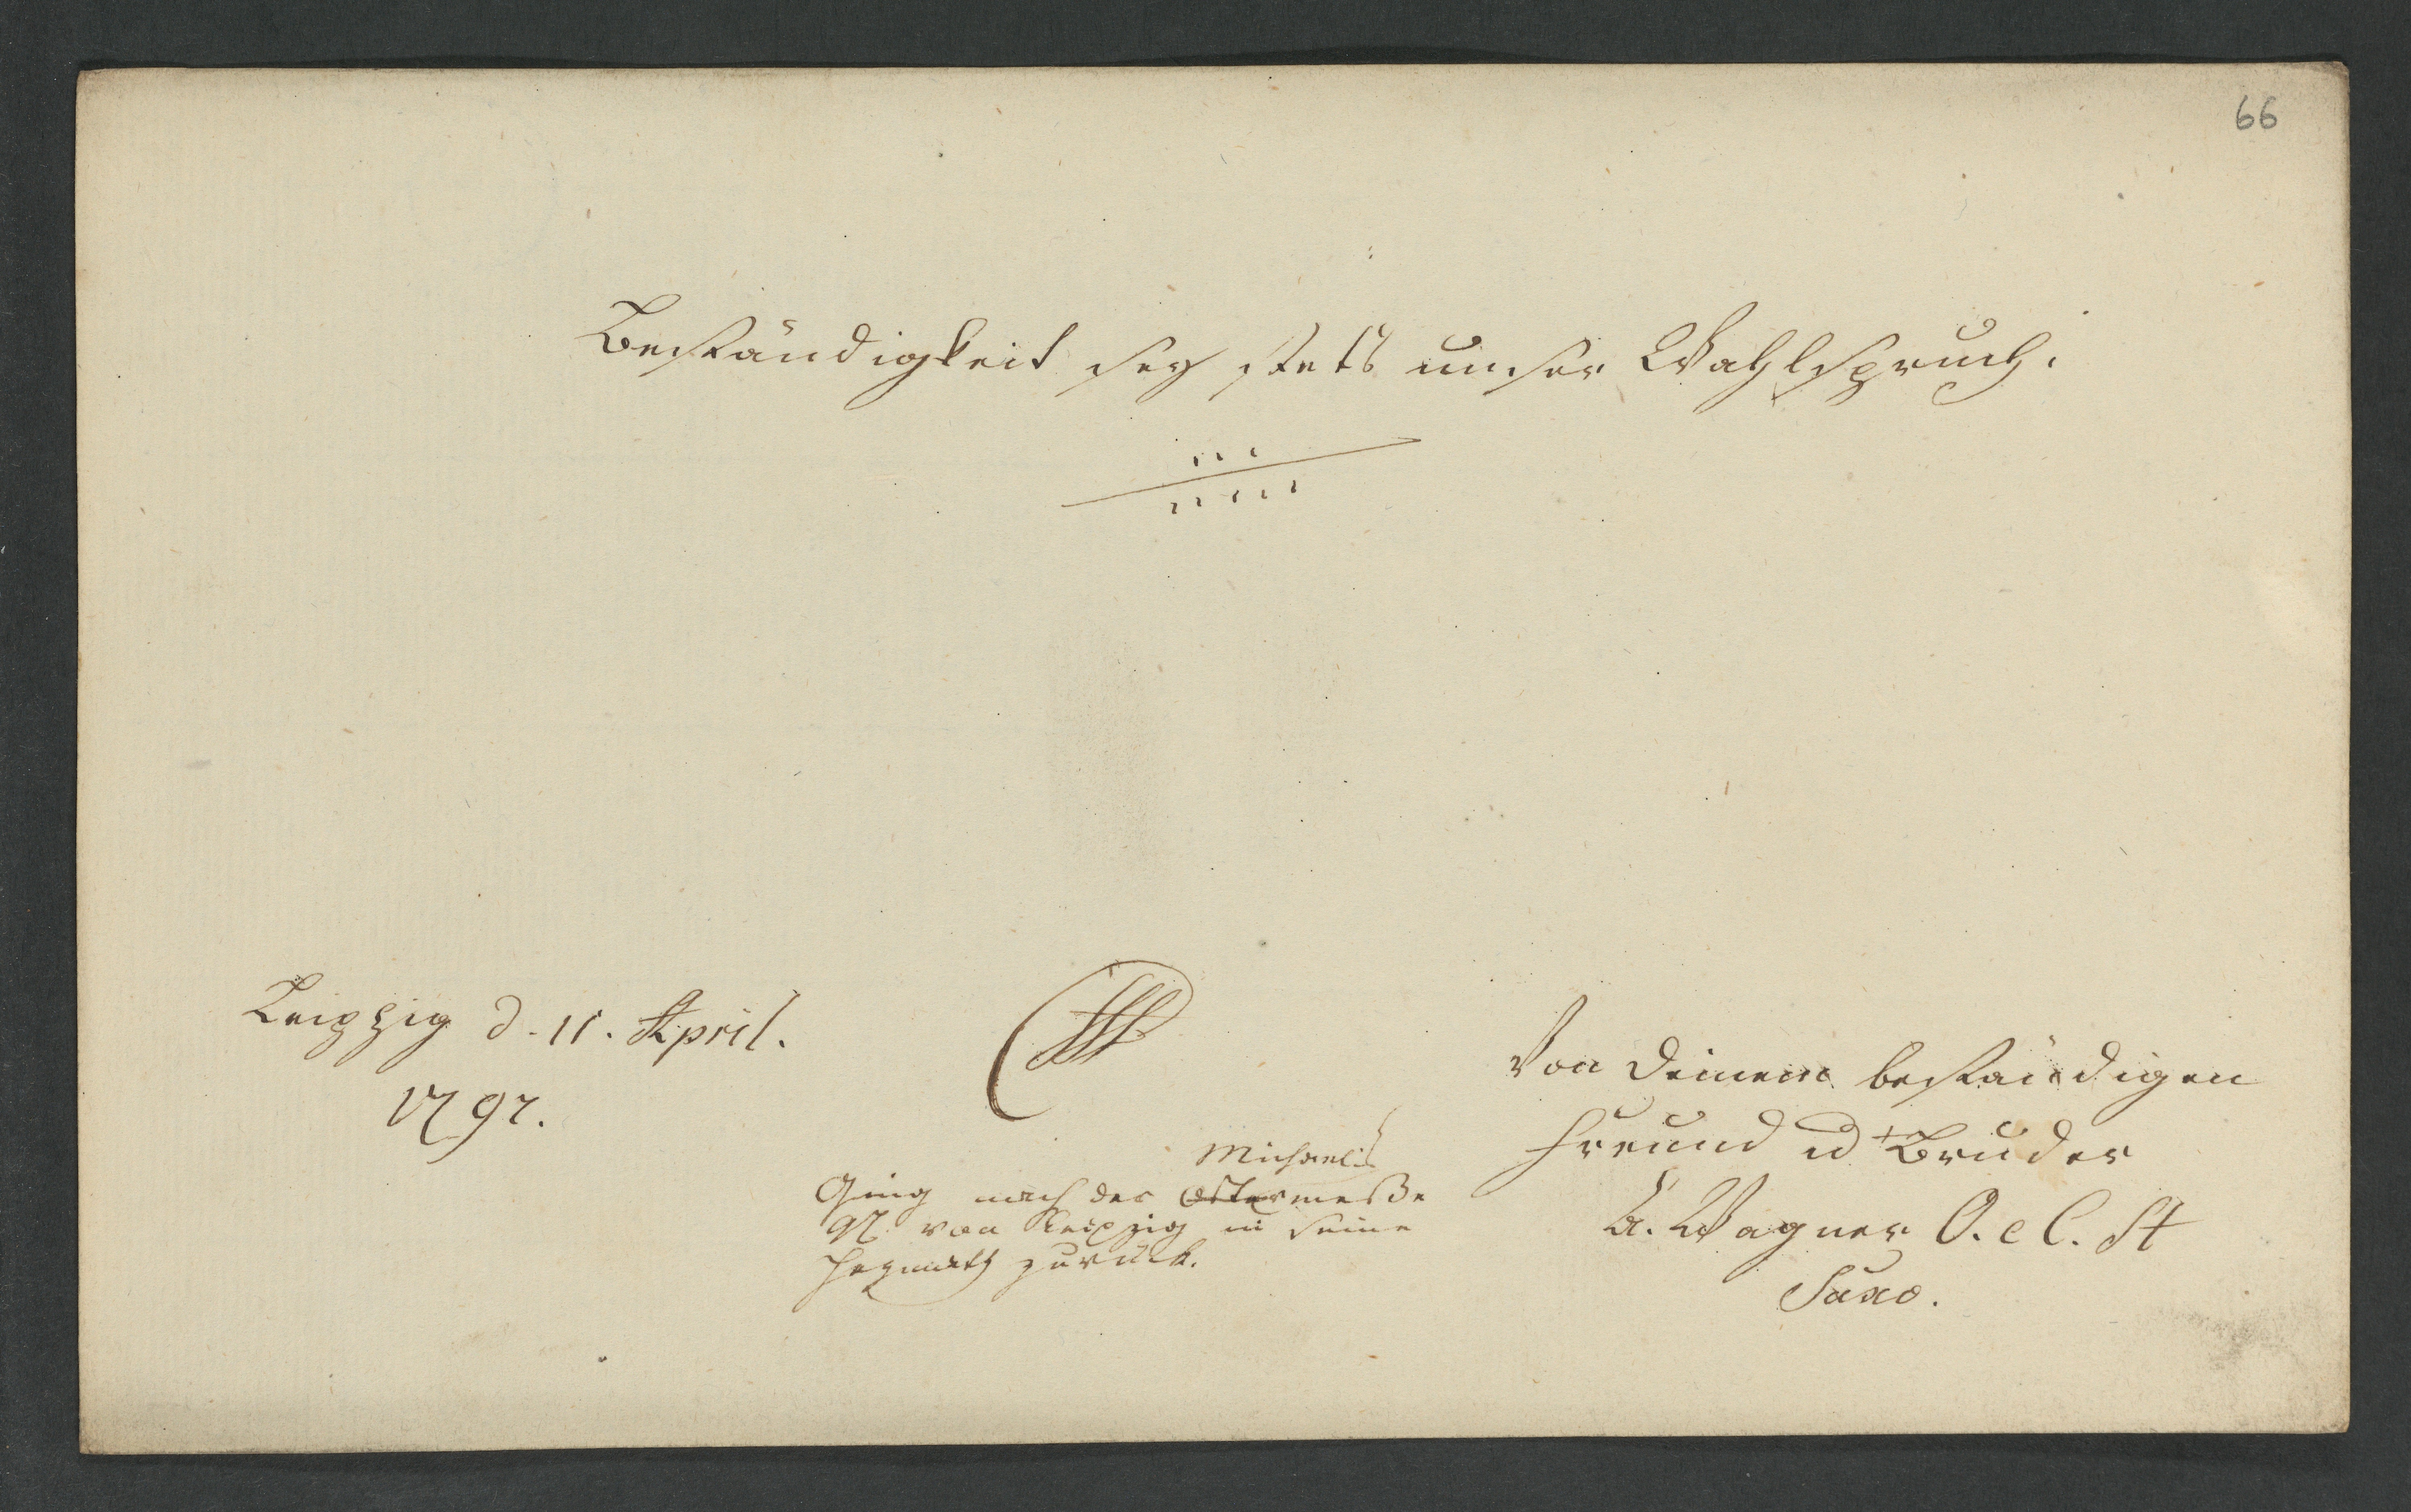 66
Beständigkeit sey stets unser Wahlspruch.
Leipzig d. 11. April.
1797.
Von Deinem beständigen
Freund u Bruder
A. Wagner O. e C. St
Saxo.
Michaelis
Ging nach der Ostermeße
97. von Leipzig in seine
Heymath zurück.